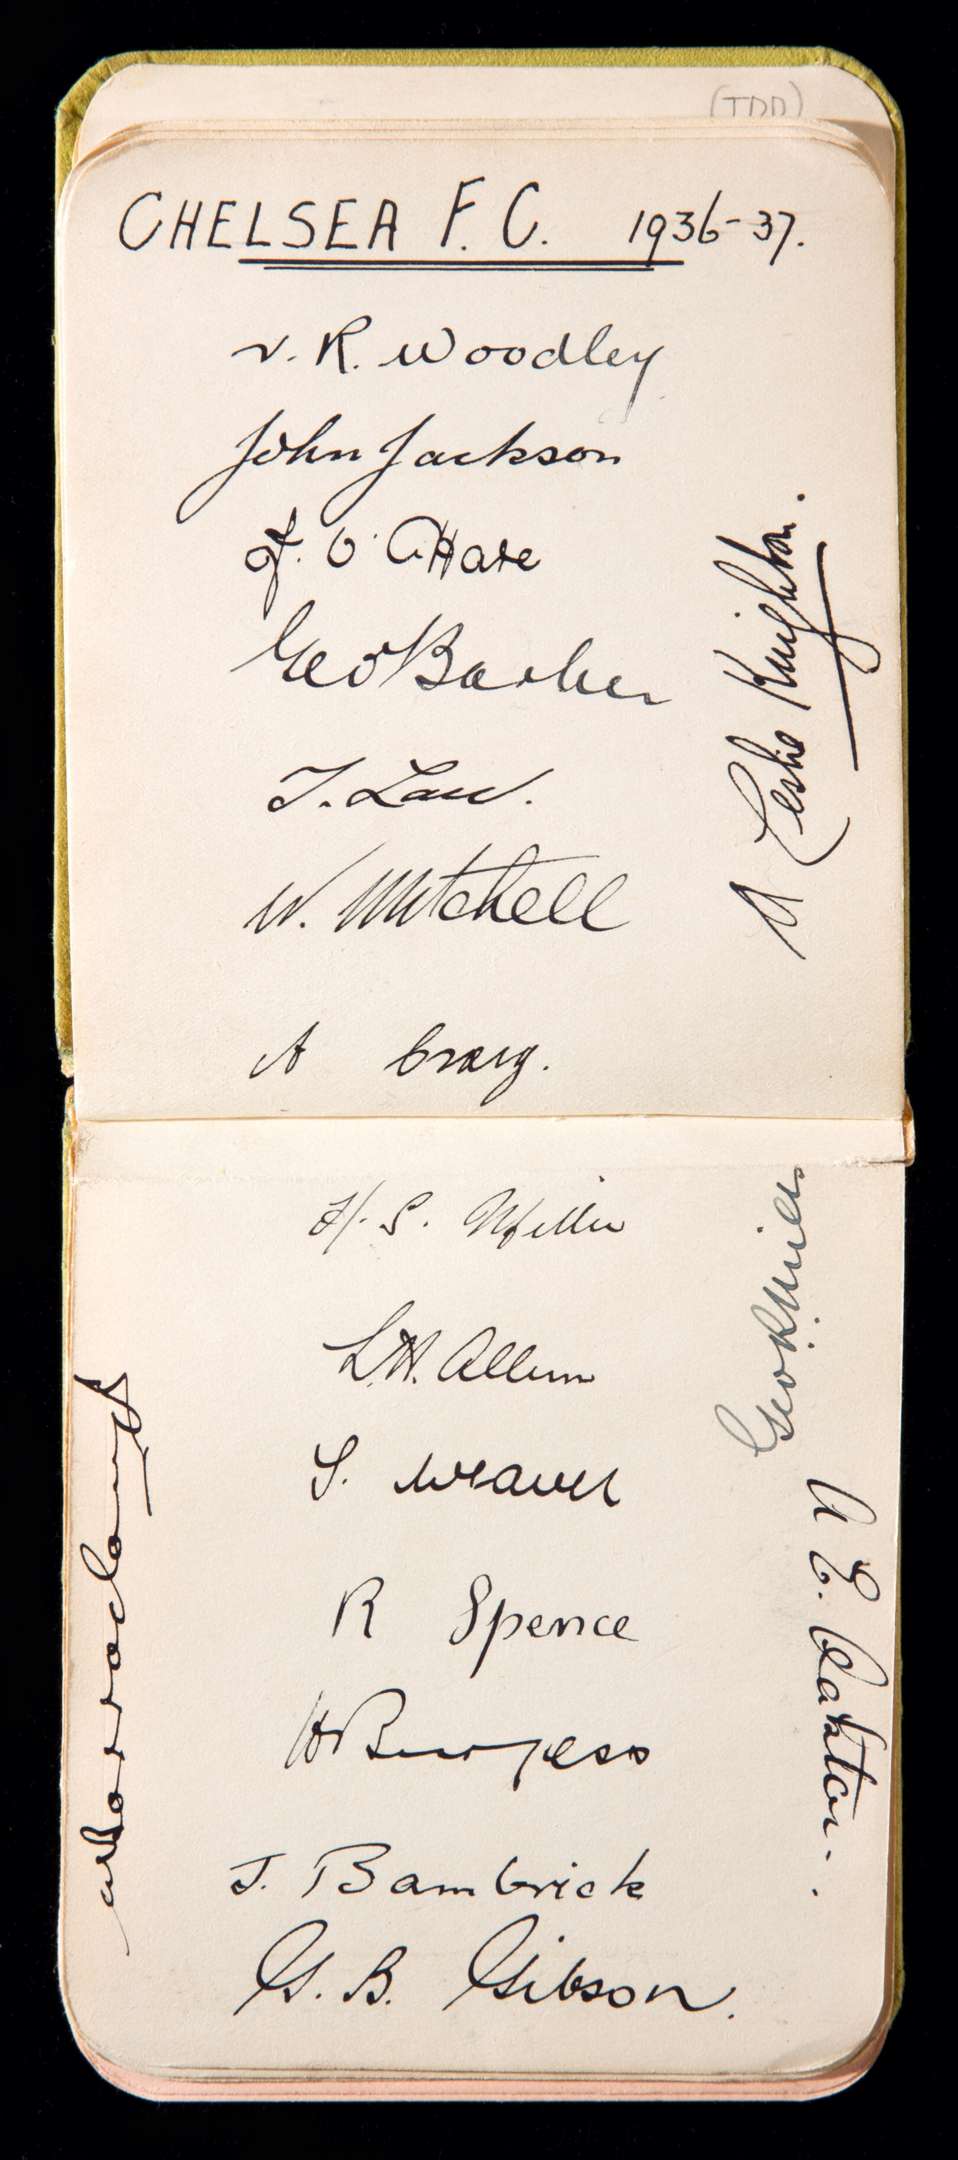 (TDD)
CHELSEA F.C. 1936-37.
V. R. Woodley
John Jackson
J. O'Hare
Geo Barber
T. Law.
W. Mitchell
A Craig.
A Leslie Knighton.
H. S. Miller
L.H. Allum
S. Weaver
R Spence
H Burgess
J. Bambrick
G. B. Gibson.
Geo R Mills
W Barraclough